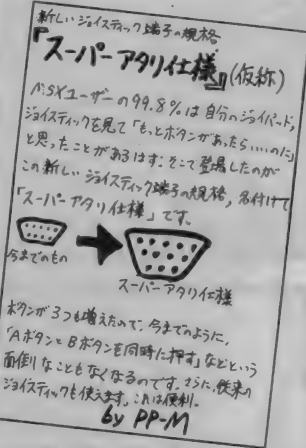 新しいジョイスティック端子の規格
『スーパーアタリ仕様』(仮称)
MSXユーザーの99.8%は自分のジョイパッド,
ジョイスティックを見て「もっとボタンがあったらいいのに」
と思ったことがあるはず。そこで登場したのが
この新しいジョイスティック端子の規格,名付けて
「スーパーアタリ仕様」です。
今までのもの
スーパーアタリ仕様
ボタンが3つも増えたので,今までのように,
「AボタンとBボタンを同時に押す」などという
面倒なこともなくなるのです。さらに,従来の
ジョイスティックも使えます。これは便利。
by PP-M